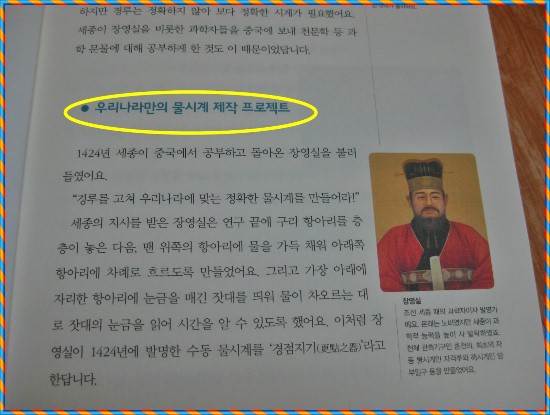 하지만 경루는 정확하지 않아 보다 정확한 시계가 필요했어요.
세종이 장영실을 비롯한 과학자들을 중국에 보내 천문학 등 과
학 문물에 대해 공부하게 한 것도 이 때문이었답니다.
● 우리나라만의 물시계 제작 프로젝트
1424년 세종이 중국에서 공부하고 돌아온 장영실을 불러
들였어요.
"경루를 고쳐 우리나라에 맞는 정확한 물시계를 만들어라!"
세종의 지시를 받은 장영실은 연구 끝에 구리 항아리를 층
층이 놓은 다음, 맨 위쪽의 항아리에 물을 가득 채워 아래쪽
항아리에 차례로 흐르도록 만들었어요. 그리고 가장 아래에
자리한 항아리에 눈금을 매긴 잣대를 띄워 물이 차오르는 대
로 잣대의 눈금을 읽어 시간을 알 수 있도록 했어요. 이처럼 장
영실이 1424년에 발명한 수동 물시계를 '경점지기(更點之器)'라고
한답니다.
장영실
조선 세종 때의 과학자이자 발명가
예요. 본래는 노비였지만 세종이 과
학적 능력을 높이 사 발탁하였죠.
천체 관측기구인 혼천의, 최초의 자
동 물시계인 자격루와 해시계인 앙
부일구 등을 만들었어요.